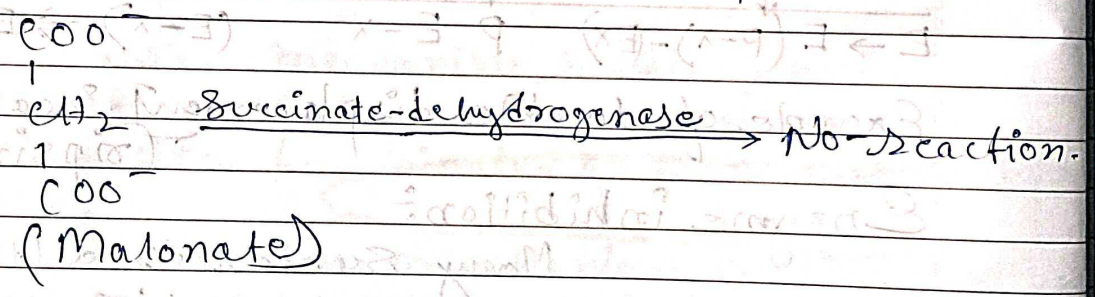 COO⁻
|
CH2 Succinate-dehydrogenase → No-reaction.
|
COO⁻
(Malonate)